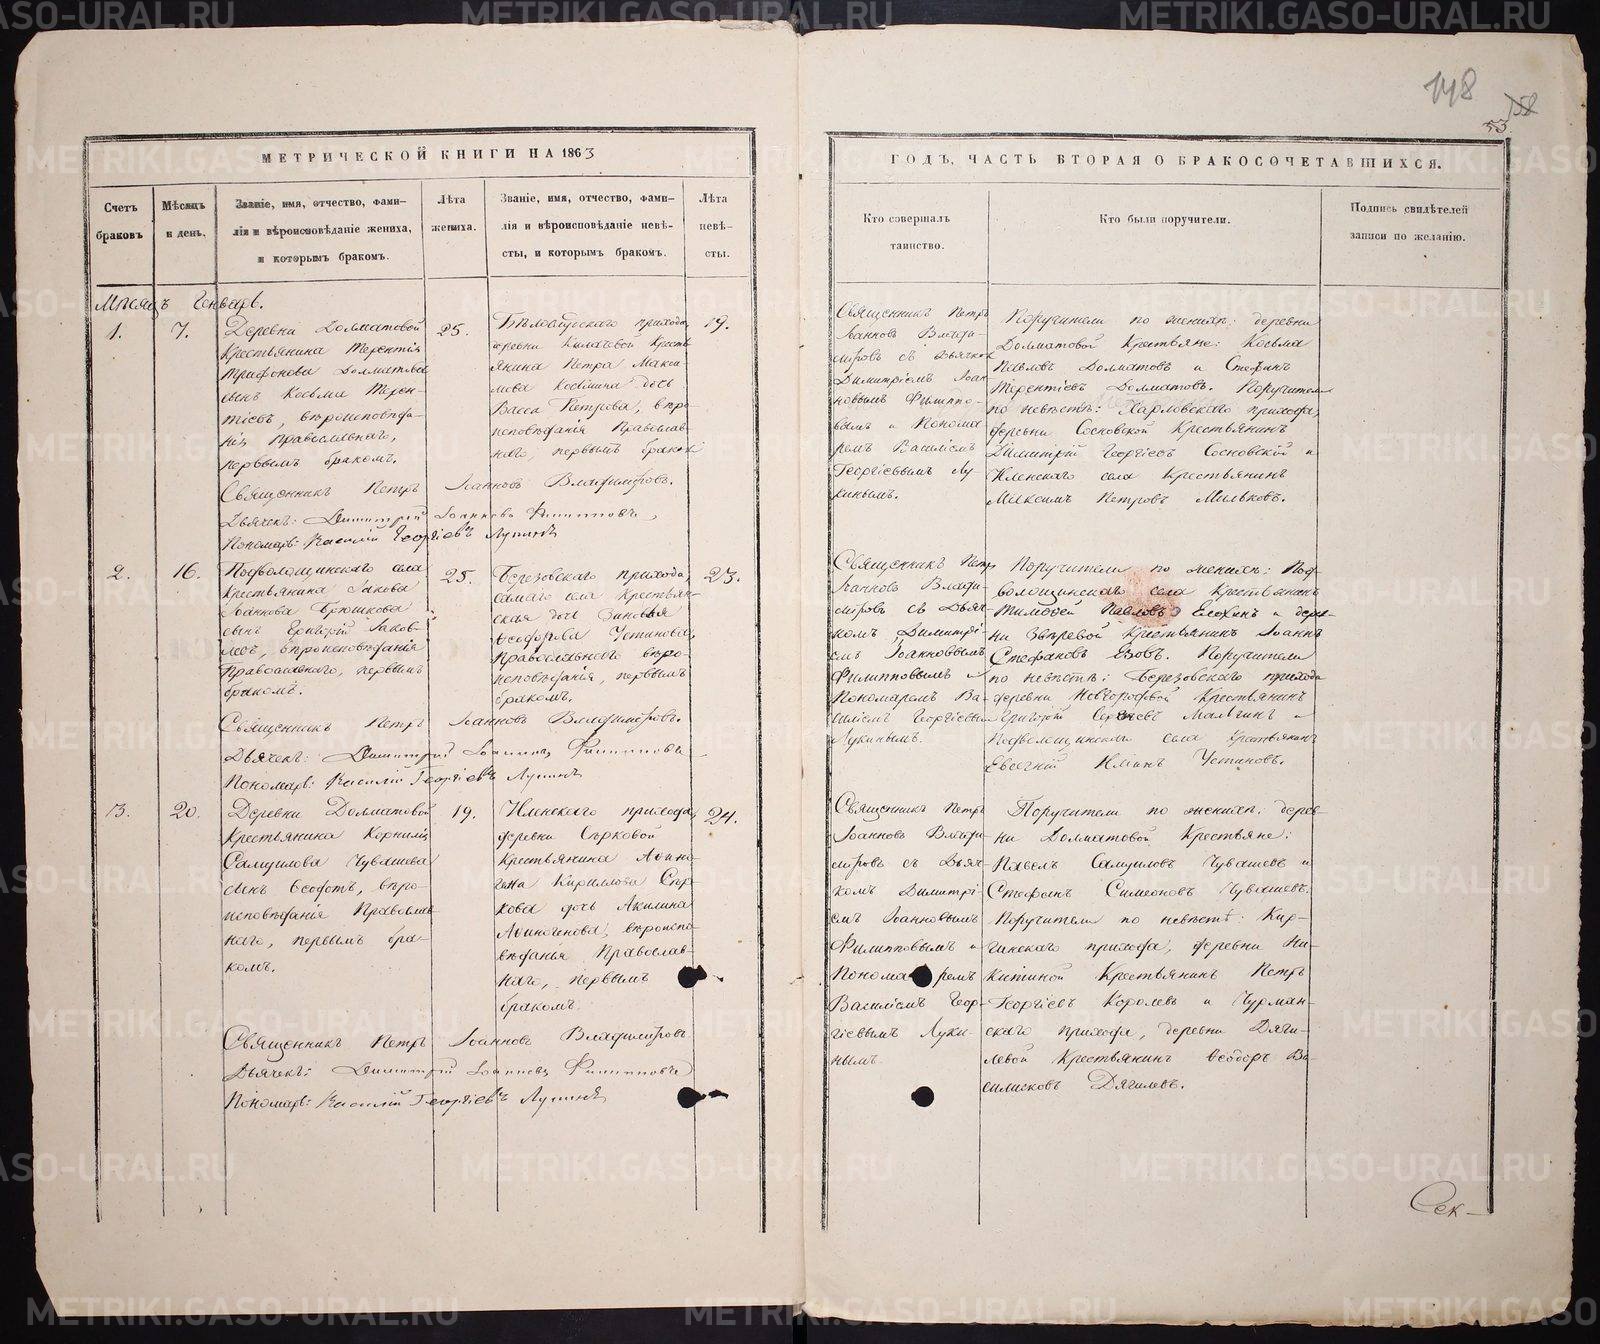 148
158
53.
МЕТРИЧЕСКОЙ КНИГИ НА 1863
Счетъ
браковъ
Мѣсяцъ
и день.
Званіе, имя, отчество, фами-
лія и вѣроисповѣданіе жениха,
и которымъ бракомъ.
Лѣта
жениха.
Званіе, имя, отчество, фами-
лія и вѣроисповѣданіе невѣ-
сты, и которымъ бракомъ.
Лѣта
невѣ-
сты.
Мѣсяцъ Генварь.
1.
7.
Деревни Долматовой
Крестьянина Терентія
Трифонова Долматова
сынъ Косьма Терен-
тіевъ, вѣроисповѣда-
нія Православнаго,
первымъ бракомъ.
25.
прихода,
деревни Кресть
янина Петра Макси
мова дочь
Васса Петрова, вѣро
исповѣданія Православ-
наго, первымъ бракомъ
19.
Священникъ Петръ Іоанновъ Владиміровъ.
Дьячекъ: Димитрій Іоанновъ Филипповъ,
Пономарь: Василій Георгіевъ Лукинъ
2.
16.
Подволошинскаго села
Крестьянина Іакова
Іоаннова Брюшкова
сынъ Григорій Іаков-
левъ, вѣроисповѣданія
Православнаго, первымъ
бракомъ.
25.
Березовскаго прихода,
самаго села Крестьян-
ская дочь Зиновья
Ѳеодорова Устинова,
Православнаго вѣро-
исповѣданія, первымъ
бракомъ.
23.
Священникъ Петръ Іоанновъ Владиміровъ.
Дьячекъ: Димитрій Іоанновъ Филипповъ
Пономарь: Василій Георгіевъ Лукинъ
3.
20.
Деревни Долматовой
Крестьянина Корнилія
Самуилова Чувашева
сынъ Ѳеодотъ, вѣро-
исповѣданія Православ
наго, первымъ бра-
комъ.
19.
прихода,
деревни Сѣрковой
Крестьянина Аѳино-
гена Кириллова Сѣр-
кова дочь Акилина
Аѳиногенова, вѣроиспо-
вѣданія Православ-
наго, первымъ
бракомъ.
24.
Священникъ Петръ Іоанновъ Владиміровъ
Дьячекъ: Димитрій Іоанновъ Филипповъ
Пономарь: Василій Георгіевъ Лукинъ
ГОДЪ, ЧАСТЬ ВТОРАЯ О БРАКОСОЧЕТАВШИХСЯ.
Кто совершалъ
таинство.
Кто были поручители.
Подпись свидѣтелей
записи по желанію.
Священникъ Петръ
Іоанновъ Влади-
міровъ съ Дьячком
Димитріемъ Іоан-
новымъ Филиппо-
вымъ и Понома
ремъ Василіемъ
Георгіевымъ Лу-
кинымъ.
Поручители по женихѣ: деревни
Долматовой Крестьяне: Косьма
Павловъ Долматовъ и Стефанъ
Терентіевъ Долматовъ. Поручители
по невѣстѣ: Харловскаго прихода,
деревни Сосновской Крестьянинъ
Димитрій Георгіевъ Сосновской и
села Крестьянинъ
Максимъ Петровъ Мильковъ.
Священникъ Петръ
Іоанновъ Влади-
міровъ съ Дьяч-
комъ Димитрі-
емъ Іоанновымъ
Филипповымъ и
Пономаремъ Ва-
силіемъ Георгіевым
Лукинымъ.
Поручители по женихѣ: Под-
волошинскаго села Крестьянинъ
Тимоѳей Павловъ Елохинъ и дерев-
ни Звѣревой Крестьянинъ Іоаннъ
Стефановъ Поручители
по невѣстѣ: Березовскаго прихода
деревни Новгородовой Крестьянинъ
Григорій Сергѣевъ Мальгинъ и
Подволошинскаго села Крестьянинъ
Евсегній Устиновъ.
Священникъ Петръ
Іоанновъ Влади-
міровъ съ Дьяч-
комъ Димитрі-
емъ Іоанновымъ
Филипповымъ и
Пономаремъ
Василіемъ Геор-
гіевымъ Луки-
нымъ.
Поручители по женихѣ: дерев-
ни Долматовой Крестьяне:
Павелъ Самуиловъ Чувашевъ и
Стефанъ Симеоновъ Чувашевъ.
Поручители по невѣстѣ: Кир-
гинскаго прихода, деревни Ни-
китиной Крестьянинъ Петръ
Георгіевъ Королевъ и Чурман-
скаго прихода, деревни Дяги-
левой Крестьянинъ Ѳеодоръ Ва-
силисковъ Дягилевъ.
Сек-
METRIKI.GASO-URAL.RU